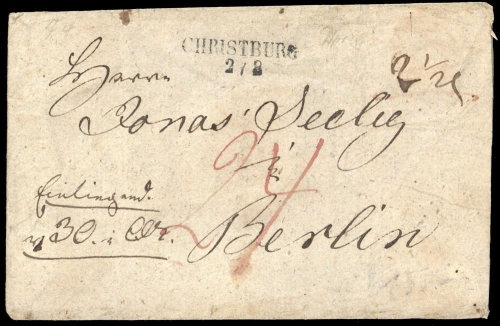 CHRISTBURG
2/8
Herrn
2 1/2
Jonas Seelig
24
in
Einliegend.
30. in
Berlin